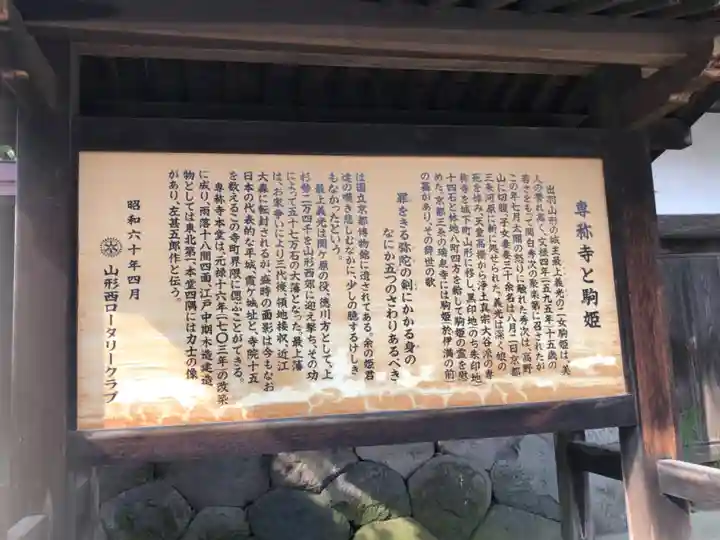 専称寺と駒姫
出羽山形の城主最上義光の二女駒姫は、美
人の誉れ高く、文禄四年(一五九五年)十五歳の
若さをもって関白秀次の聚楽第に召されたが
この年七月太閤の怒りに触れた秀次は、高野
山に切腹、子女妻妾三十余名は八月二日京都
三条河原に斬に処せられた。義光は深く姫の
死を悼み、天童高擶から浄土真宗大谷派の専
称寺を城下町山形に移し、黒印地のち朱印地
十四石と林地八町四方を給して駒姫の霊を慰
めた。京都三条の瑞泉寺には駒姫於伊満の前
の墓があり、その辞世の歌
罪をきる弥陀の剣にかかる身の
なにか五つのさわりあるべき
は国立京都博物館に遺されてある。余の姫君
達の嘆き悲しむなかに、少しの臆するけしき
もなかったという。
最上義光は関ケ原の役、徳川方として、上
杉勢二万四千を山形西郊に迎え撃ち、その功
によって五十七万石の大藩となった。最上藩
は、お家争いにより三代後、領地接収、近江
大森に転封されるが、盛時の面影は今もなお
日本の代表的な平城、霞ケ城址と、寺院十五
を数えるこの寺町界隈に偲ぶことができる。
専称寺本堂は、元禄十六年(一七〇三年)の改築
に成り、雨落十八間四面、江戸中期木造建造
物としては東北第一、本堂四隅には力士の像
があり、左甚五郎作と伝う。
昭和六十年四月
山形西ロータリークラブ